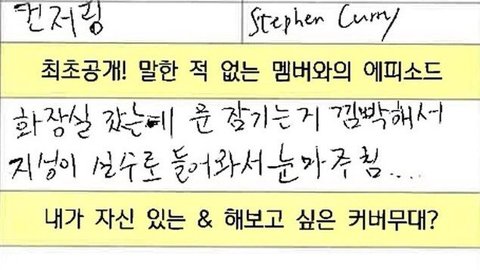 컨저링 Stephen Curry
최초공개! 말한 적 없는 멤버와의 에피소드
화장실 갔는데 문 잠기는거 깜빡해서
지성이 실수로 들어와서 눈마주침....
내가 자신 있는 & 해보고 싶은 커버무대?